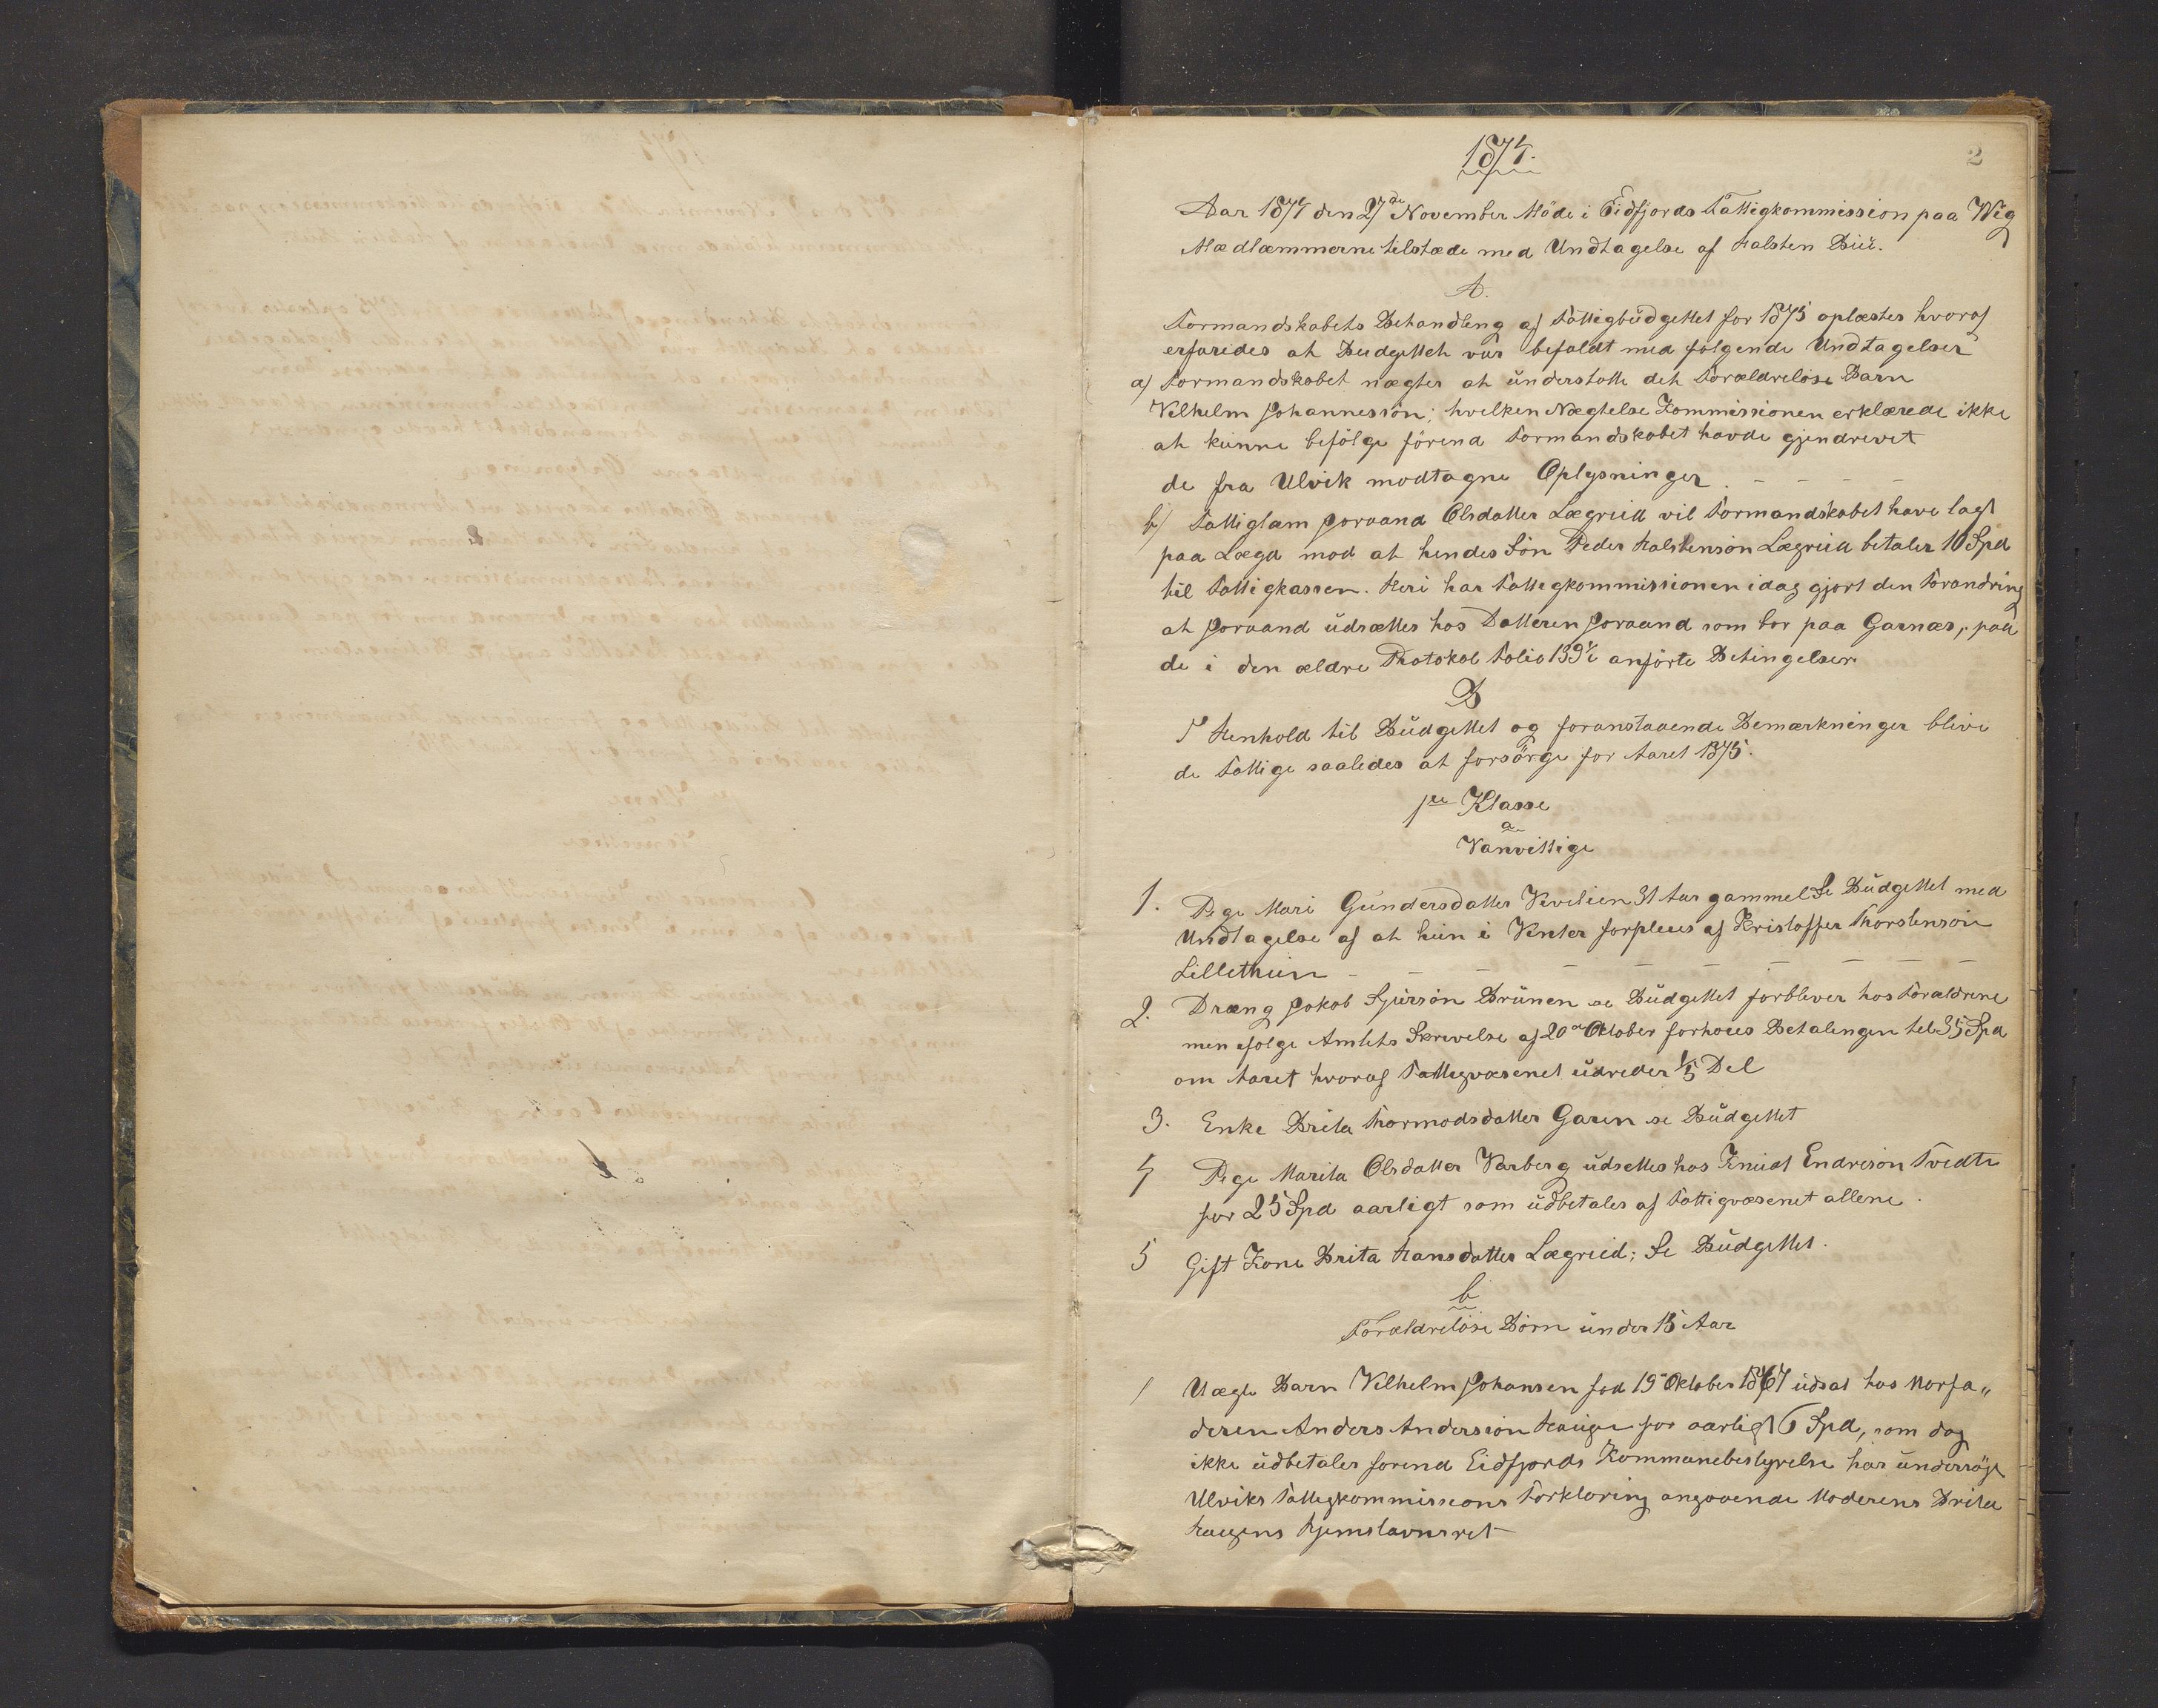 2
1874.
Aar 1874 den 27de November Möde i Eidfjords Fattigkommission paa Wig
Medlæmmerne tilstæde med Undtagelse af Halsten Bui.
A.
Formandskabets Behandling af Fattigbudgettet for 1875 oplæstes hvoraf
erfaredes at Budgettet var befaldt med følgende Undtagelser
a) Formandskabet nægter at understøtte det Forældreløse Barn
Vilhelm Johannessön; hvilken Nægtelse Kommissionen erklærede ikke
at kunne befölge förend Formandskabet havde gjendrevet
de fra Ulvik modtagne Oplysninger.
b) Fattiglam Joraand Olsdatter Lægreid vil Formandskabet have lagt
paa Lægd mod at hendes Sön Peder Halstensön Lægreid betaler 10 Spd
til Fattigkassen. Heri har Fattigkommissionen idag gjort den Forandring
at Joraand udsættes hos Datteren Joraand som bor paa Garnæs, paa
de i den ældre Protokol Folio 139 anförte Betingelser
B
I Henhold til Budgettet og foranstaaende Bemærkninger blive
de Fattige saaledes at forsörge for Aaret 1875.
1ste Klasse
a
Vanvittige
1. Pige Mari Gundersdatter Kvilien 31 Aar gammel Se Budgettet med
Undtagelse af at hun i Vinter forpleies af Kristoffer Thorstensön
Lillethun
2. Dræng Jokob Sjursön Brunen se Budgettet forbliver hos Forældrene
men ifolge Amtets Skrivelse af 20de Oktober forhöies Betalingen til 35 Spd
om Aaret hvoraf Fattigvæsenet udreder 1/5 Del
3. Enke Brita Thormodsdatter Garen se Budgettet
4 Pige Marita Olsdatter Varberg udsettes hos Knud Endreson Tvedte
for 25 Spd aarligt som udbetales af Fattigvæsenet allene.
5 Gift Kone Brita Hansdatter Lægreid; Se Budgettet.
b
Forældrelöse Börn under 15 Aar
1 Uægte Barn Vilhelm Johansen fød 19de Oktober 1867 udsat hos Morfa„
deren Anders Andersson Hauge for aarligt 6 Spd, som dog
ikke udbetales forend Eidfjords Kommunebestyrelse har undersögt
Ulviks Fattigkommissions Forklaring angaaende Moderens Brita
Haugens Hjemstavnsret